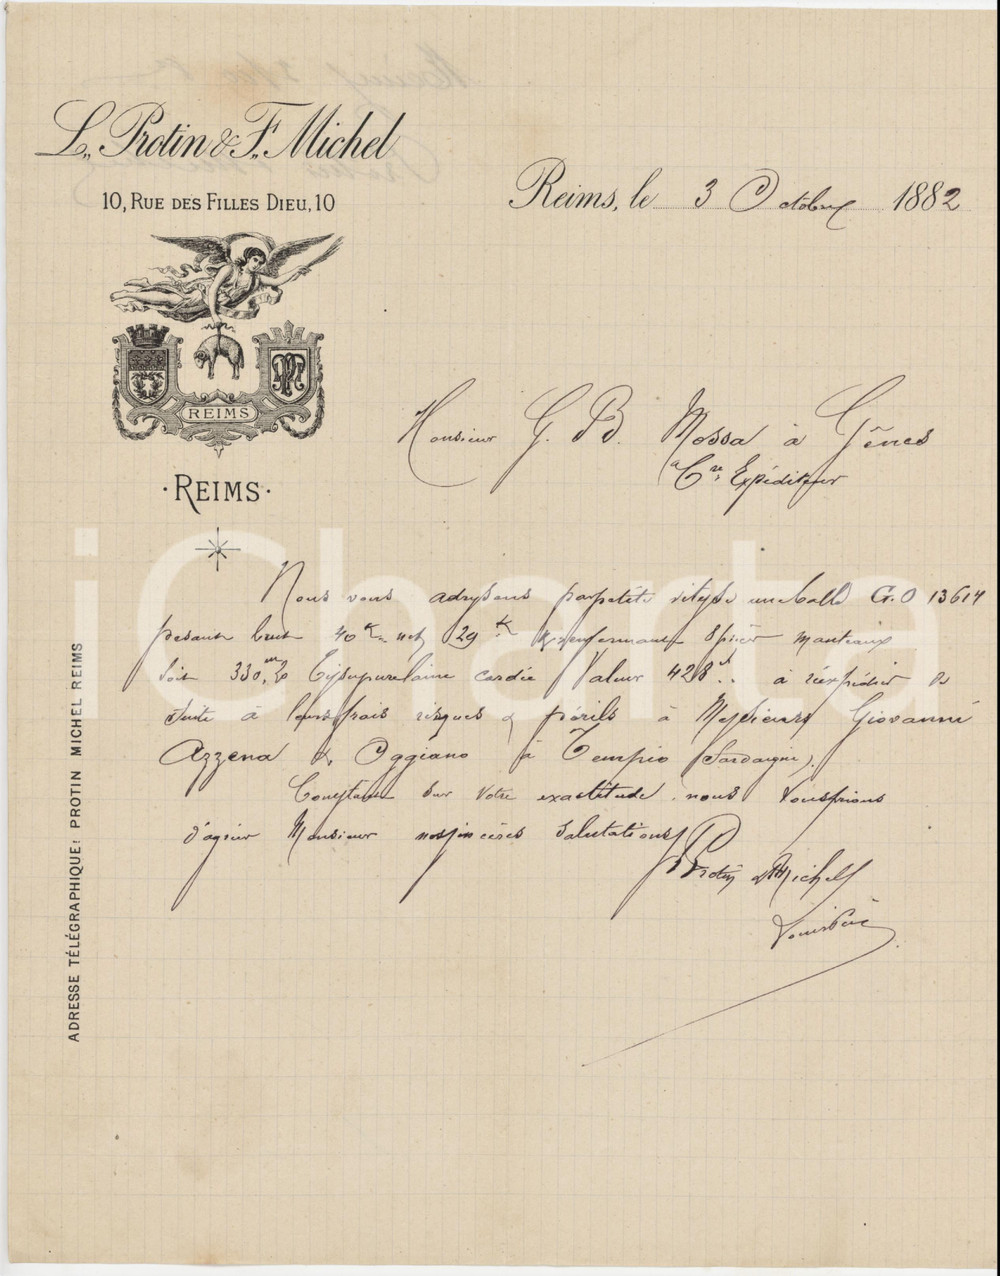 L. Protin & F. Michel
10, RUE DES FILLES DIEU, 10
REIMS
·REIMS·
Reims, le 3 Octobre 1882
Monsieur G. B. Mossa à Gênes
Expéditeur
Nous vous adressons par petite vitesse une balle G.O 13614
pesant brut 40 K net 29 K renfermant manteaux
soit 330 Tissu pure laine cardée Valeur 428 à réexpédier de
suite à leurs frais risques & périls à Messieurs Giovanni
Azzena & Oggiano à Tempio (Sardaigne).
Comptant sur votre exactitude nous vous prions
d'agréer Monsieur nos sincères salutations
Protin & Michel
ADRESSE TÉLÉGRAPHIQUE: PROTIN MICHEL REIMS
iCharta